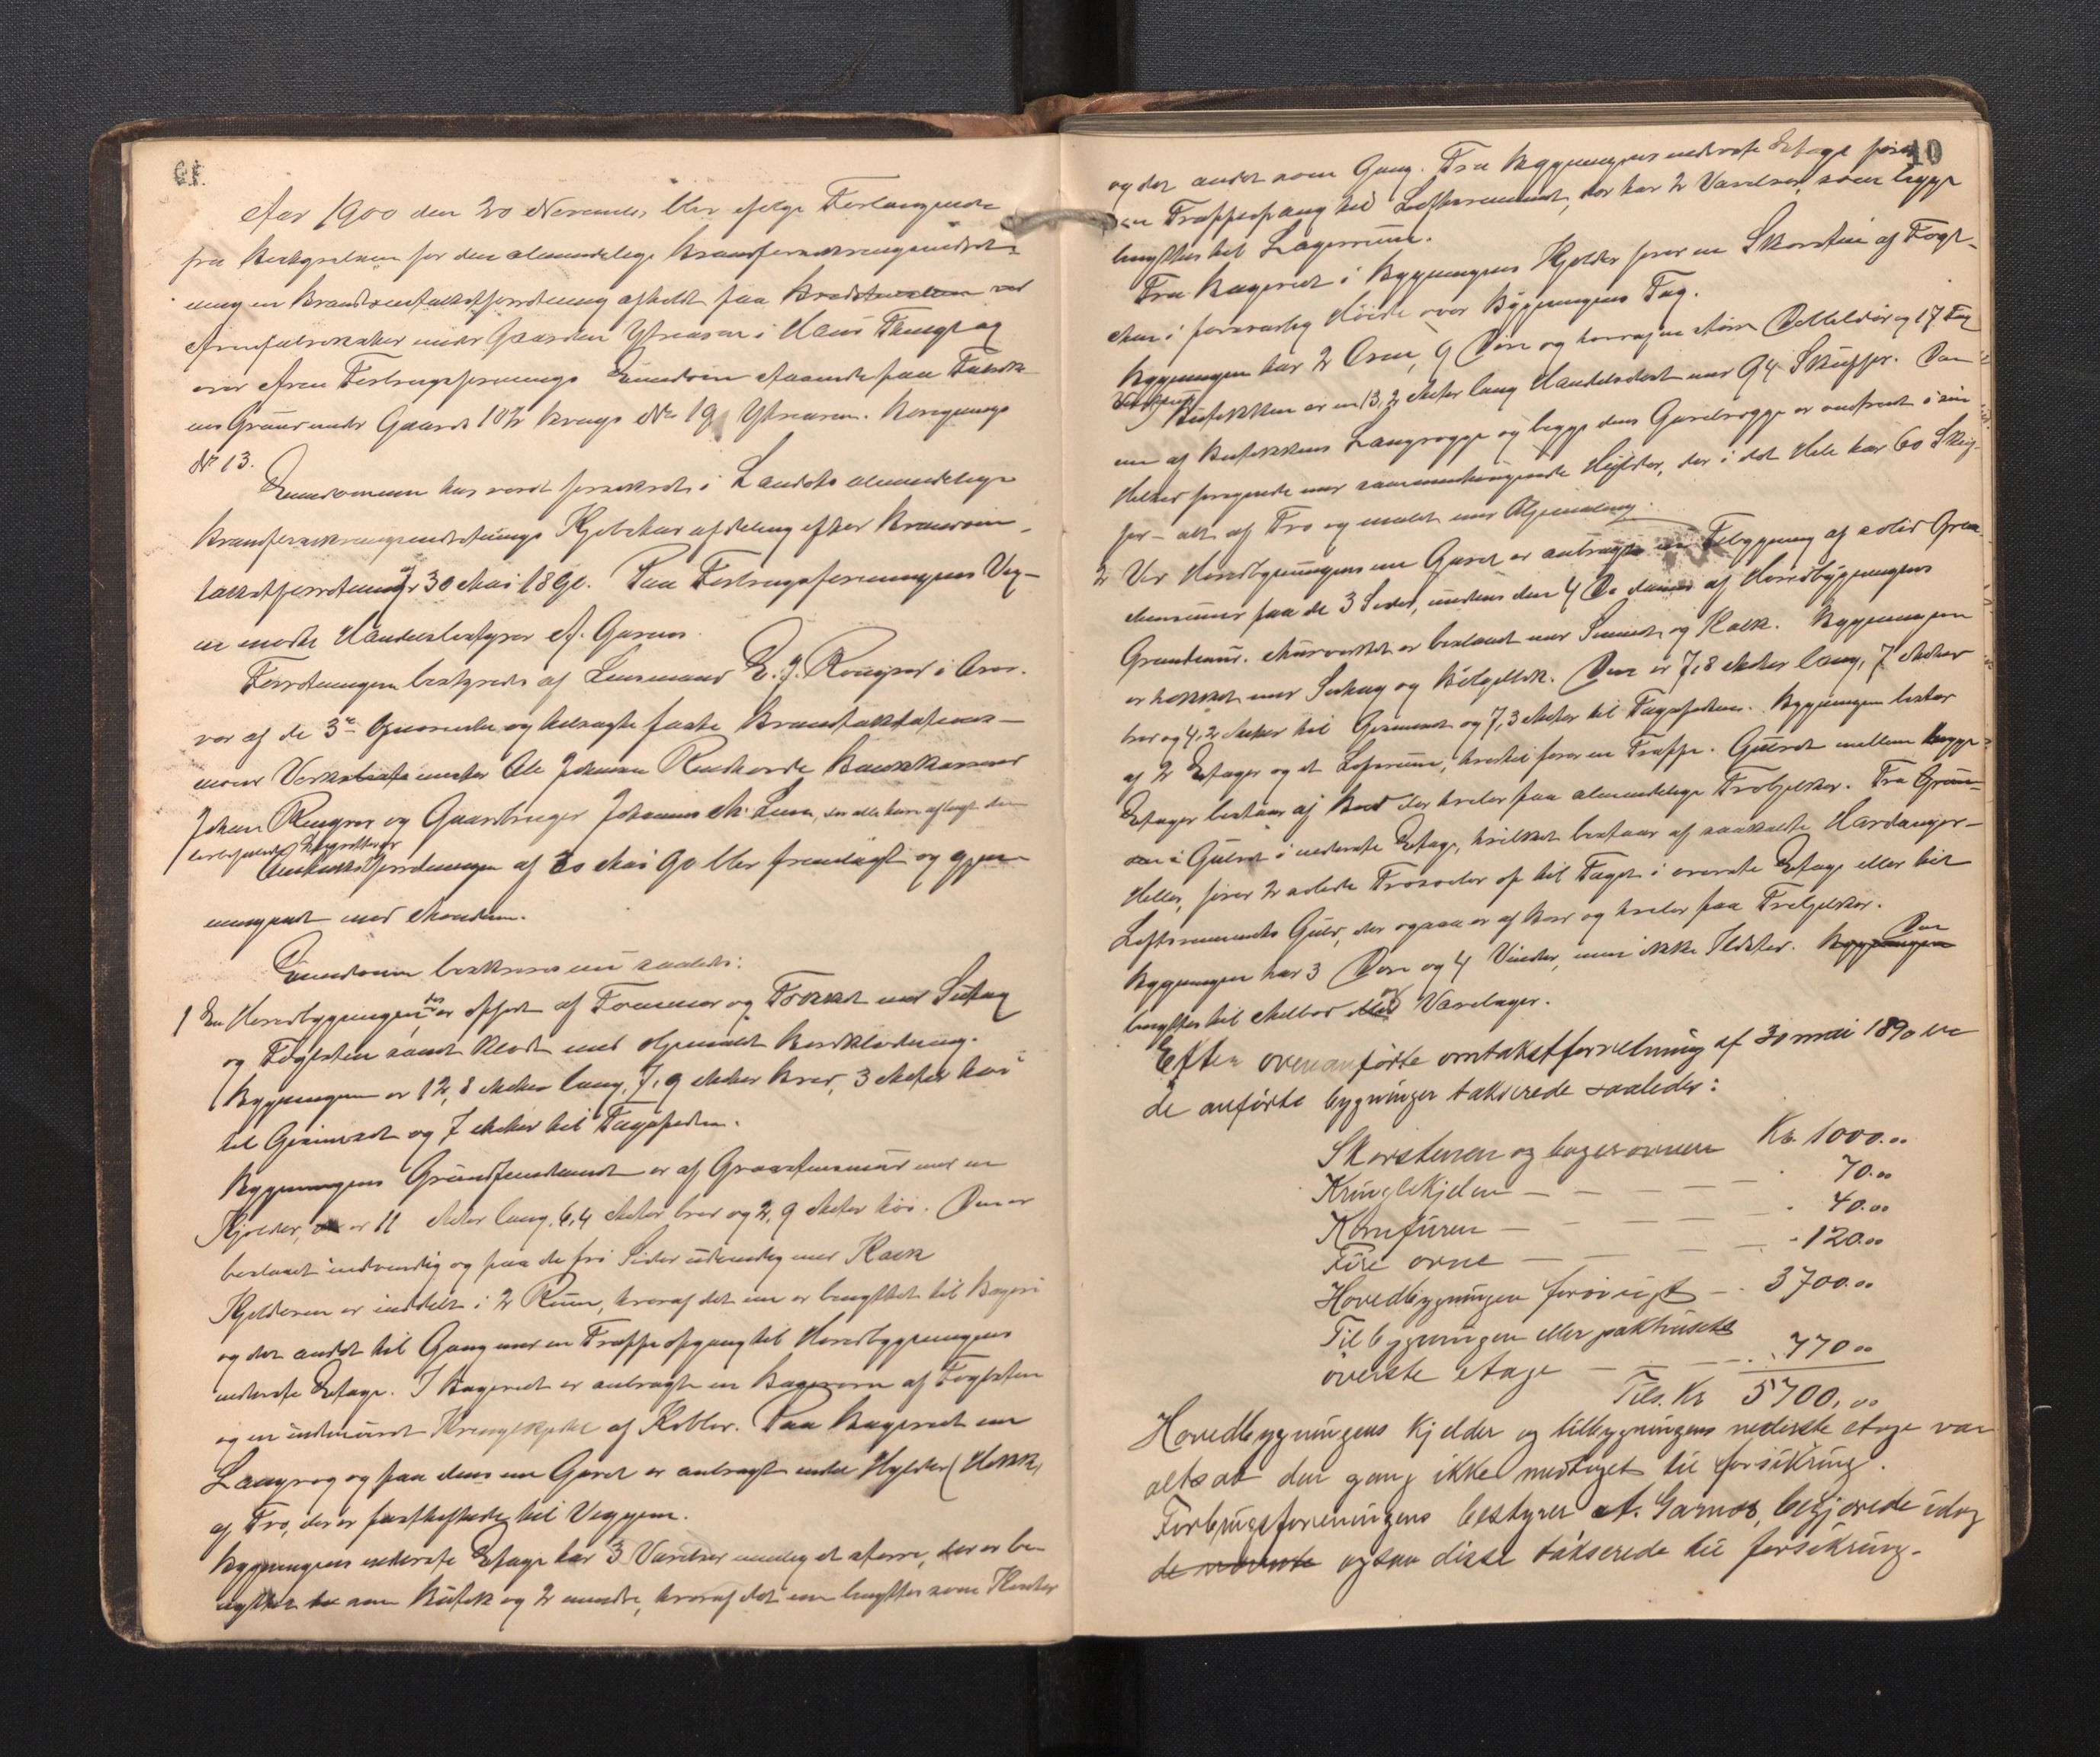 Aar 1900 den 20 November blev efter Forlangende
fra Bestyrelsen for den almindelige Brandforsikringsindret-
ning en Brandomtaxtforretning afholdt paa ved
Arnefabrikker under Gaarden Ytrearne i Haus Thinglag
over Arne Forbrugsforenings Eiendom staaende paa Fabrik-
ens Grund under Gaards No 102 Brugs No 19 Ytrearne. Bygnings
No 13.
Eiendommen har været forsikret i Landets almindelige
Brandforsikringsindretnings Kjøbstadafdeling efter Brandom-
taxtforretning af 30 Mai 1890. Paa Forbrugsforeningens Veg-
ne mødte Handelsbestyrer A. Garnes.
Forretningen bestyredes af Lensmand E. J. Rongved i Over-
vær af de 3de opnævnte og edsvagte faste Brandtakstmænd
Værksmester Ole Johnsen Bankkasserer
Johan Rongved og Gaardbruger Johannes M. Lone, der alle have aflagt den
lovbefalede Ed
Omtaxtforretningen af 30 Mai 90 blev fremlagt og gjen-
nemgaaet med Mændene.
Eiendommen beskrives nu saaledes:
1 En Hovedbygningen, der er opført af Tømmer og Trækket med Sutag
og Teglsten samt klædt med oljemalt Bordklædning.
Bygningen er 12,8 Meter lang, 7,9 Meter bred, 3 Meter høi
til Gesimset og 7 Meter til Tagspidsen.
Bygningens Grundfundament er af Graastensmur med en
Kjelder, er 11 Meter lang, 6,4 Meter bred og 2,9 Meter høi. Den er
beslaaet indvendig og paa de fri Sider udvendig med Kalk
Kjelderen er inddelt i 2 Rum, hvoraf det ene er benyttet til Bageri
og det andet til Gang med en Trappeopgang til Hovedbygningens
nederste Etage. I Bageriet er anbragt en Bagerovn af Teglsten
og en indmuret Kringlekjedel af Kobber. Paa Bageriets ene
Langvæg og paa dens ene Gavl er anbragt endel Hylder
af Træ, der er fastheftede til Væggen.
Bygningens nederste Etage har 3 Værelser nemlig et større, der er be-
nyttet som Butik og 2 mindre, hvoraf det ene benyttes som Kontor
10
og det andet som Gang. Fra Bygningens nederste Etage fører
en Trappeopgang til Loftsrummet, der har 2 Værelser, som begge
benyttes til Lagerrum.
Fra Bageriet i Bygningens Kjelder fører en Skorsten af Tegl-
sten i forsvarlig Høide over Bygningens Tag.
Bygningen har 2 Ovne, 9 Døre og hvoraf en større Dobbeltdør og 17 Fag
Vinduer.
I Butikken er en 13,2 Meter lang Handelsdisk med 94 Skuffer. Den
ene af Butikkens Langvægge og begge dens Gavlvægge er omtrent i sin
Helhed forsynede med sammenhængende Hylder, der i det Hele har 60 Skuf-
fer – alt af Træ og malet med Oljemaling.
2 Ved Hovedbygningens ene Gavl er anbragt en Tilbygning af solid Graa-
stensmur paa de 3 Sider, medens den 4de dannes af Hovedbygningens
Grundmur. Murværket er beslaaet med Cement og Kalk. Bygningen
er trækket med Sutag og Bølgeblik. Den er 7,8 Meter lang, 7 Meter
bred og 4,2 Meter til Gesimset og 7,3 Meter til Tagspidsen. Bygningen bestaar
af 2 Etager og et Loftsrum, hvortil fører en Trappe. Gulvet mellem begge
Etager bestaar af Bord der hviler paa almindelige Træbjelker. Fra Grun-
den i Gulvet i nederste Etage, hvilket bestaar af saakaldte Hardanger-
Heller, fører 2 solide Træsøiler op til Taget i øverste Etage eller til
Loftsrummets Gulv, der ogsaa er af Bord og hviler paa Træbjelker.
Bygningen har 3 Døre og 4 Vinduer, men ikke Ildsted. Bygningen Den
benyttes til Melbod eller og Varelager.
Efter ovenanførte omtakstforretning af 30 mai 1890 ble
de anførte bygninger takserede saaledes:
Skorstenen og bagerovnen Kr. 1000.00
Kringlekjelen — — — — - 70.00
Komfuren — — — — - 40.00
Fire ovne — — — — - 120.00
Hovedbygningen forøvrigt — - 3700.00
Tilbygningen eller pakhusets
øverste etage — — — - 770.00
Tils. Kr 5700,00
Hovedbygningens kjelder og tilbygningens nederste etage var
altsaa den gang ikke medtaget til forsikring.
Forbrugsforeningens bestyrer A. Garnes, begjærede idag
de nævnte ogsaa disse takserede til forsikring.